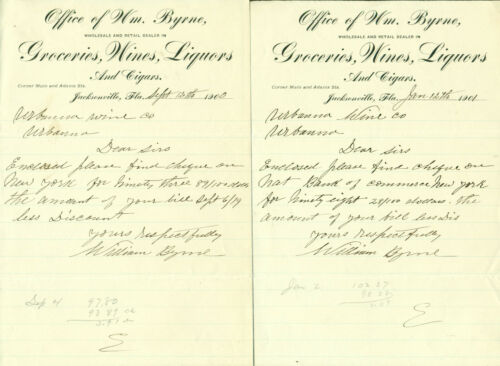 Office of Wm. Byrne,
WHOLESALE AND RETAIL DEALER IN
Groceries, Wines, Liquors
And Cigars.
Corner Main and Adams Sts.
Jacksonville, Fla. Sept 13th 1900
Urbanna wine co
Urbanna
Dear Sirs
Enclosed please find cheque on
New York for Ninety three 89/100
the amount of your bill Sept 6/19
less Discount
yours respectfully
William Byrne
Sep 4 97.80
93.89
E
Office of Wm. Byrne,
WHOLESALE AND RETAIL DEALER IN
Groceries, Wines, Liquors
And Cigars.
Corner Main and Adams Sts.
Jacksonville, Fla. Jan 12th 1901
Urbanna Wine co
Urbanna
Dear Sirs
Enclosed please find cheque on
Nat Bank of commerce New york
for Ninety eight 28/100 dollars. the
amount of your bill less Dis
yours respectfully
William Byrne
Jan 2 102.37
E